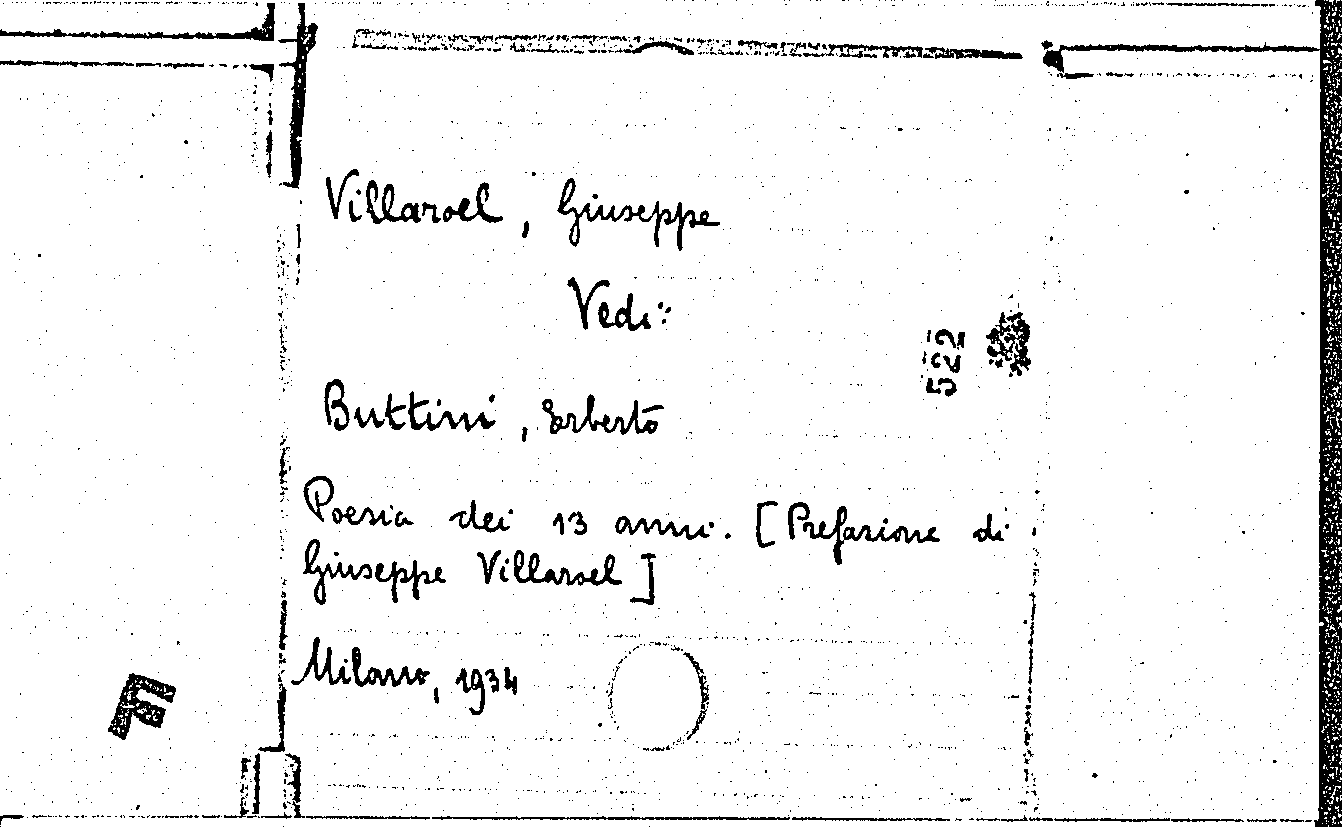 Villaroel, Giuseppe
Vedi:
522
Buttini, Erberto
Poesia dei 13 anni. [Prefazione di
Giuseppe Villaroel]
Milano, 1934
F